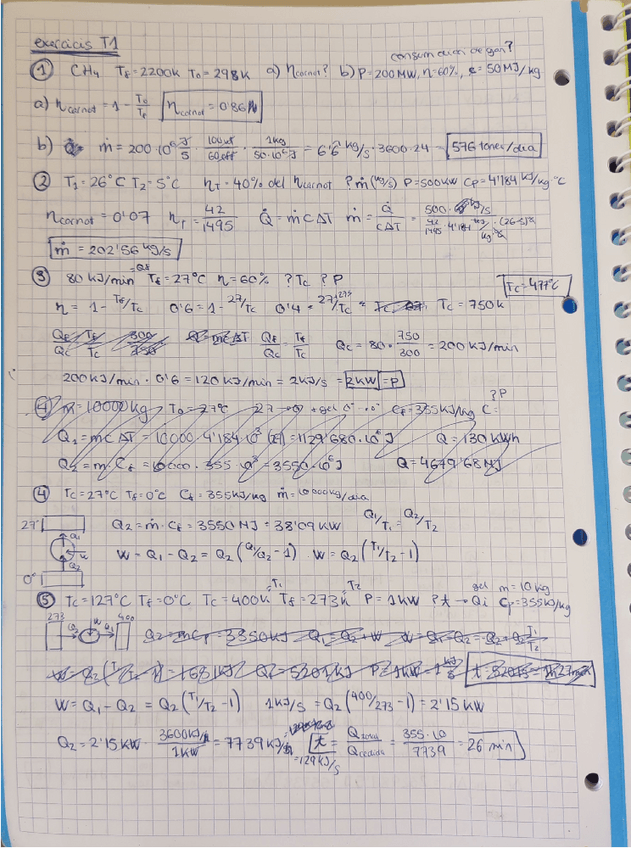 exercicis T1
consum diari de gas?
① CH4 Tf=2200K To=298K a) ηcarnot? b) P=200MW, η=60%, e=50MJ/kg
a) ηcarnot = 1 - To/Tf ηcarnot = 0'86
b) ṁ = 200·10⁶ J/s · 100ut/60eff · 1kg/50·10⁶J = 6'6 kg/s · 3600·24 = 576 tones/dia
② T1=26°C T2=5°C ηT=40% del ηcarnot ?ṁ(kg/s) P=500kW Cp=4'184 kJ/kg·°C
ηcarnot = 0'07 ηr = 42/1495 Q̇=ṁcΔT ṁ = Q̇/cΔT = 500 kJ/s
ṁ = 202'56 kg/s
③ 80 kJ/min=Qf Tf=27°C η=60% ?Tc ?P Tc=477°C
η = 1 - Tf/Tc 0'6 = 1 - 27/Tc 0'4 = 27+273/Tc Tc = 750K
Qf/Qc = Tf/Tc Qc = 80 · 750/300 = 200 kJ/min
200 kJ/min · 0'6 = 120 kJ/min = 2kJ/s = 2kW = P
④ m=10000kg To=27°C Cf=355kJ/kg ?P
Q1 = mCΔT = 10000·4'184·10³ (27) = 1129'680·10⁶J Q = 130 kWh
Q2 = m·Cf = 10000·355·10³ = 3550·10⁶J Q = 4679'68MJ
④ Tc=27°C Tf=0°C Cf=355kJ/kg ṁ=10000kg/dia
27° Q2 = ṁ·Cf = 3550 MJ = 38'09 kW Q1/T1 = Q2/T2
Q1
W = Q1 - Q2 = Q2 (Q1/Q2 - 1) W = Q2 (T1/T2 - 1)
Q2
0°
⑤ Tc=127°C Tf=0°C Tc=400K=T1 Tf=273K=T2 P=1kW ?t → Qi gel m=10kg Cf=355kJ/kg
273 Q2 W Q1 400
W = Q1 - Q2 = Q2 (T1/T2 - 1) 1kJ/s = Q2 (400/273 - 1) = 2'15 kW
Q2 = 2'15 kW · 3600kJ/h/1kW = 7739 kJ/h t = Qtotal/Qcedida = 355·10/7739 = 26 min
=129kJ/s